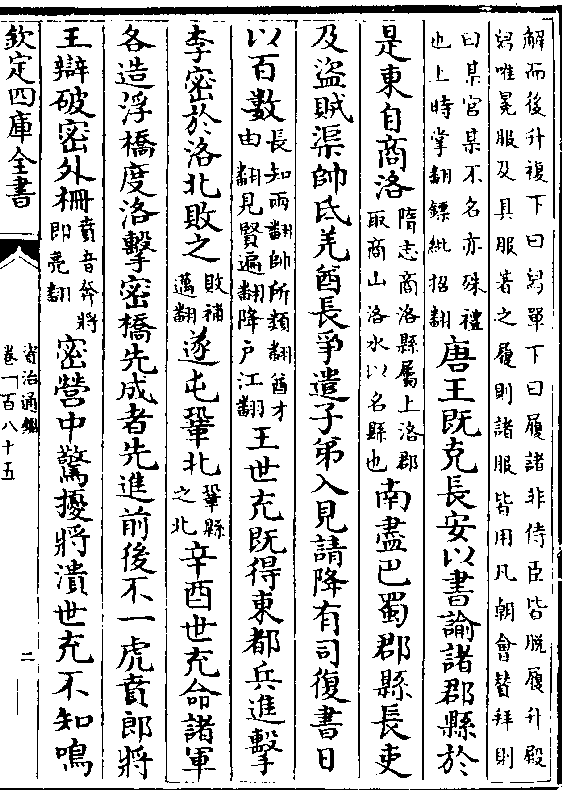 解而後升複下曰舄單下曰履諸非侍臣皆脱履升殿
舄唯冕服及具服著之履則諸服皆用凡朝會賛拜則
曰某官某不名亦殊禮
也上時掌翻鏢紕招翻
唐王既克長安以書諭諸郡縣於
是東自商洛
隋志商洛縣屬上洛郡
取商山洛水以名縣也
南盡巴蜀郡縣長吏
及盜賊渠帥氐羌酋長爭遣子弟入見請降有司復書日
以百數
長知兩翻帥所類翻酋才
由翻見賢遍翻降户江翻
王世充既得東都兵進擊
李密於洛北敗之
敗補
邁翻
遂屯鞏北
鞏縣
之北
辛酉世充命諸軍
各造浮橋度洛擊密橋先成者先進前後不一虎賁郎將
王辯破密外柵
賁音奔將
即亮翻
密營中驚擾將潰世充不知鳴
欽定四庫全書
資治通鑑
卷一百八十五
二